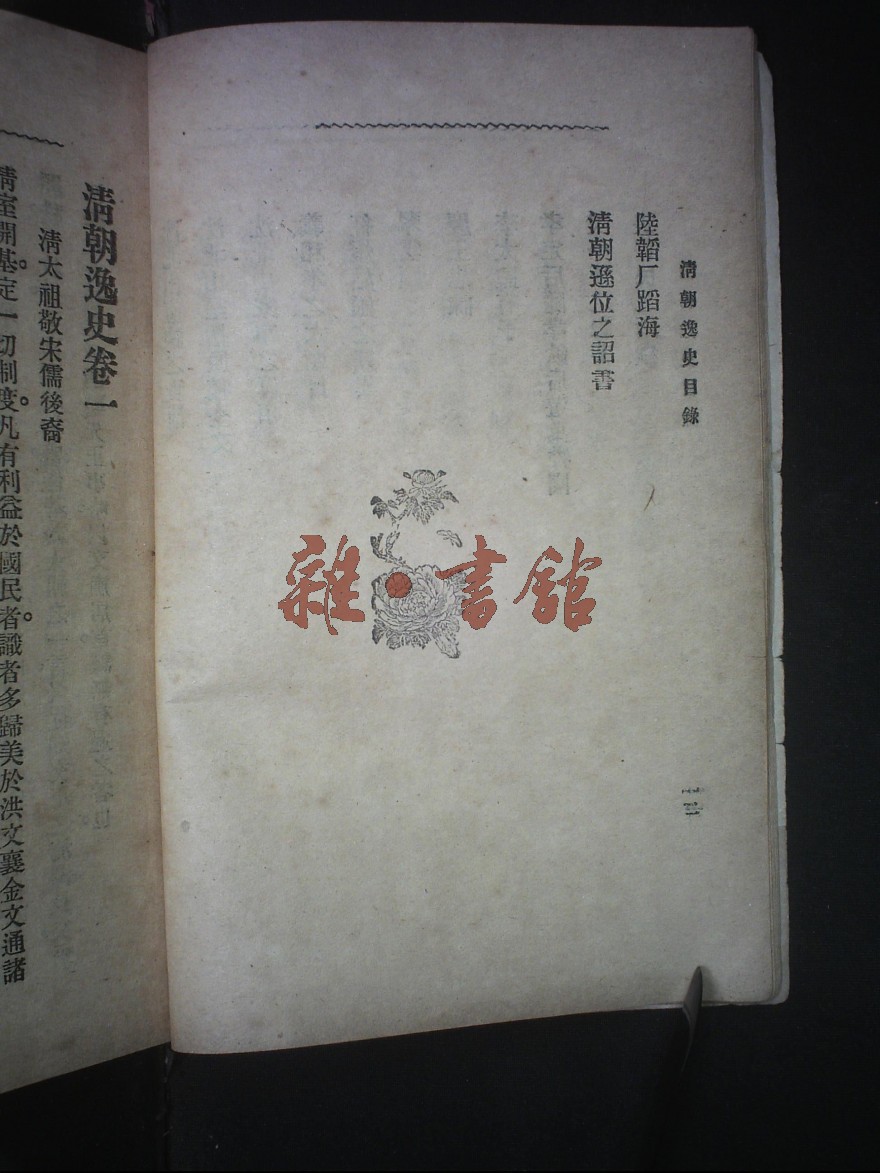 清朝逸史目錄
陸韜厂蹈海
清朝遜位之詔書
雜·書舘
清朝逸史卷一
清太祖敬宋儒後裔
清室開基。定一切制度。凡有利益於國民者。識者多歸美於洪文襄金文通諸